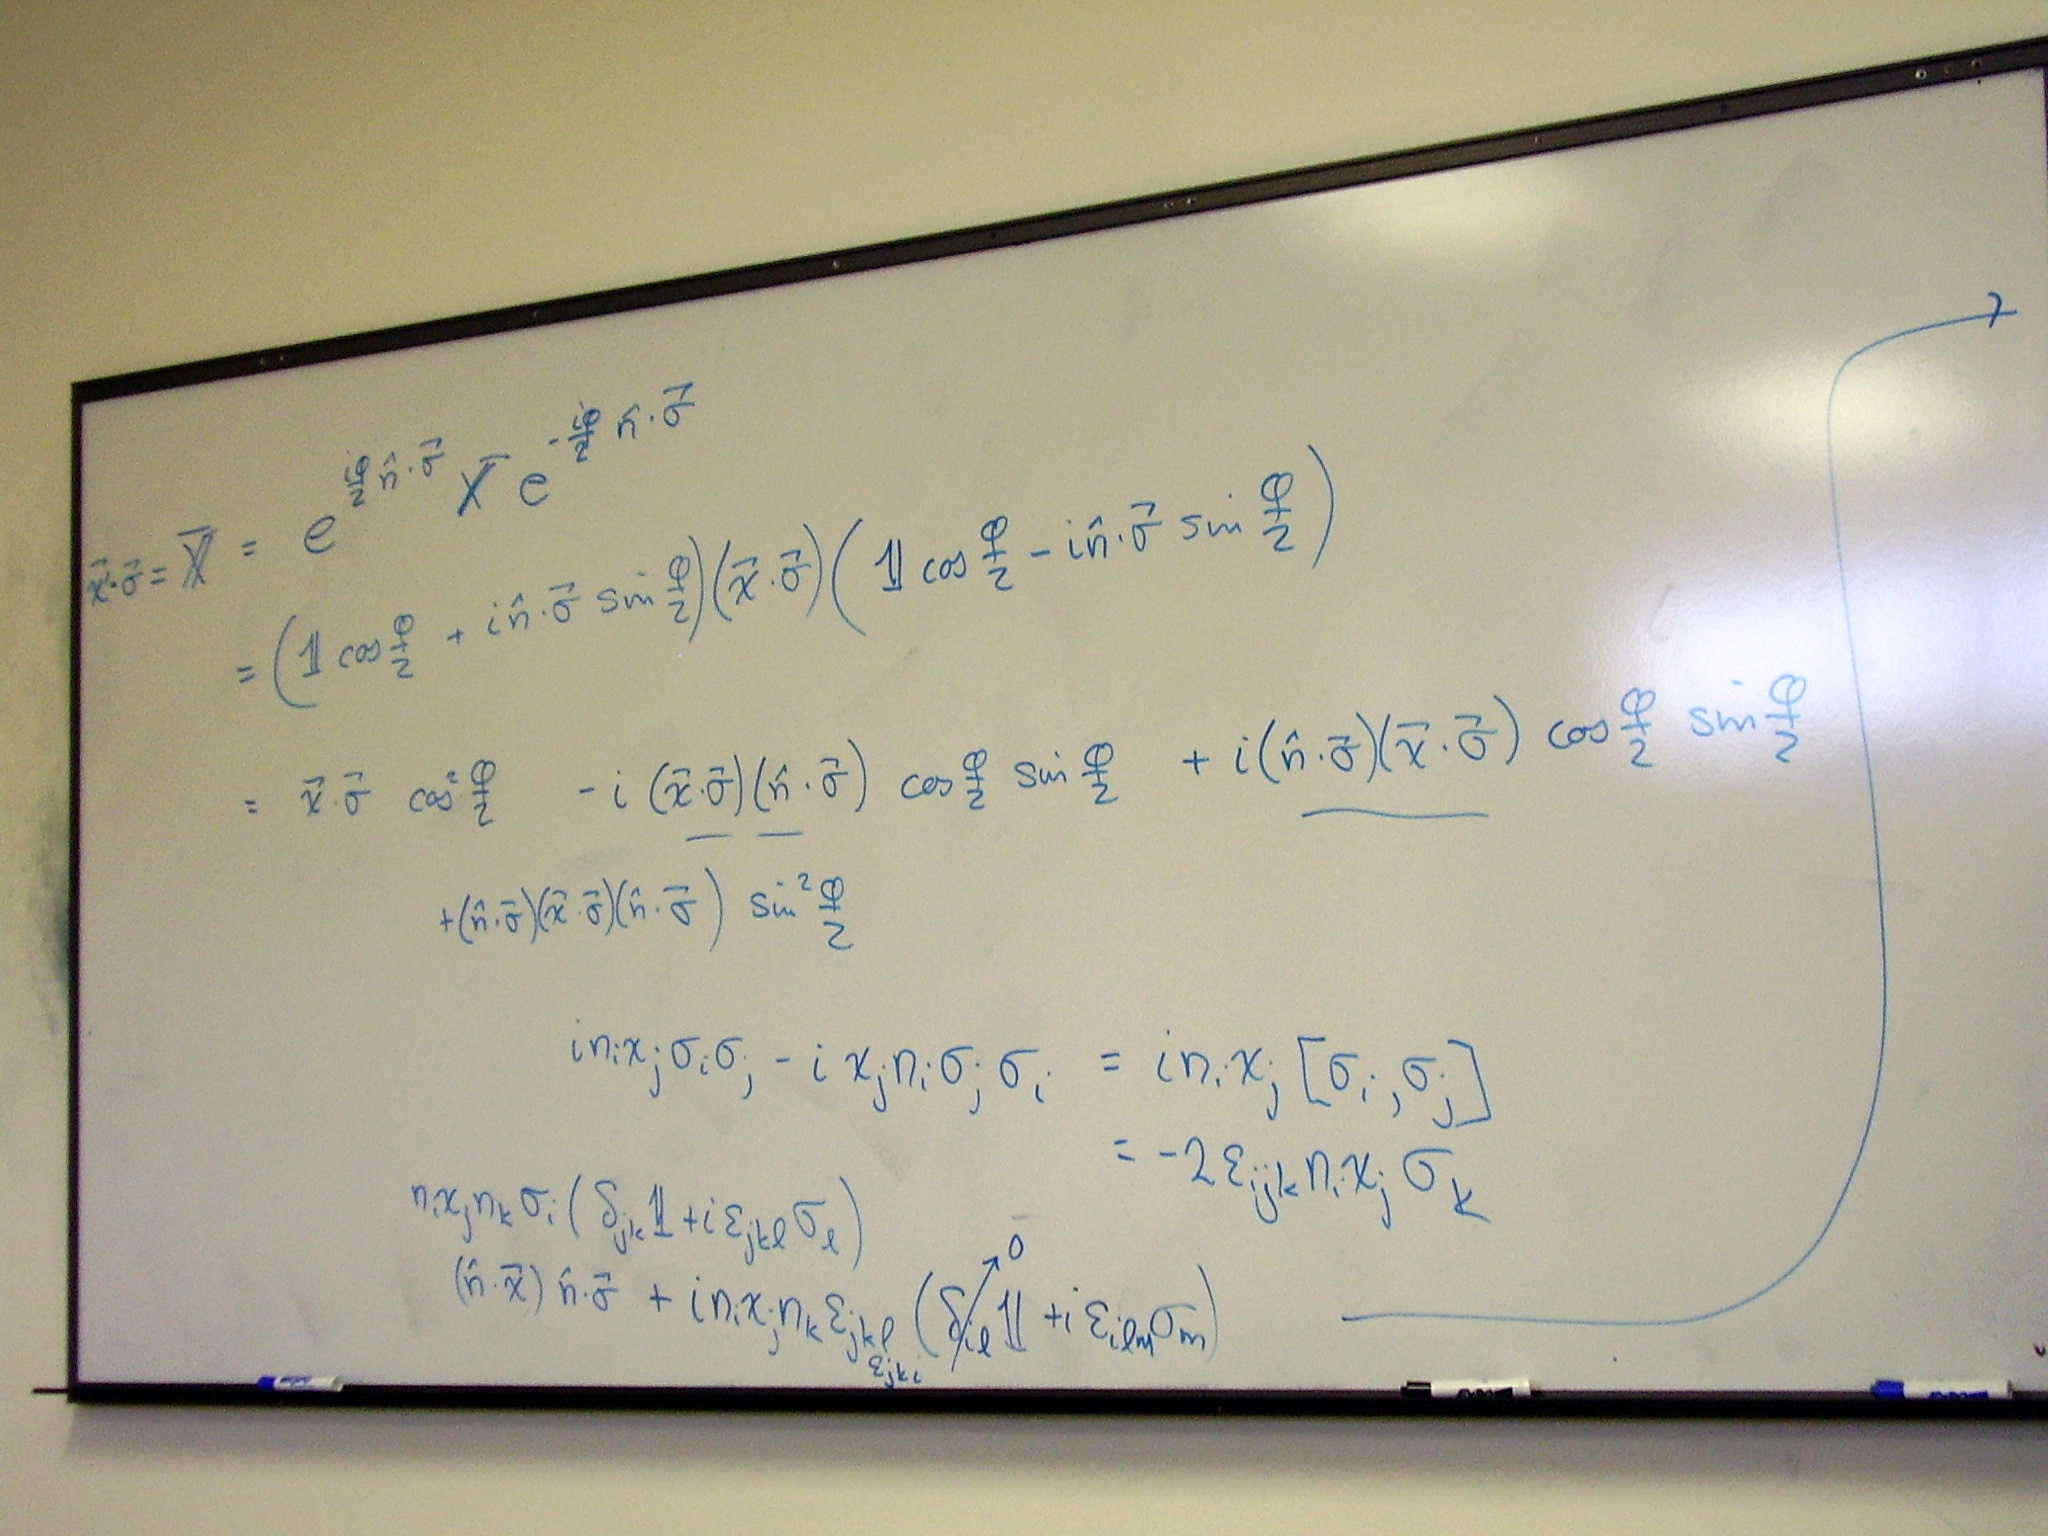 x⃗'·σ⃗ = X̄ = e^{iφ/2 n̂·σ⃗} X e^{-iφ/2 n̂·σ⃗}
= (𝟙 cos φ/2 + i n̂·σ⃗ sin φ/2)(x⃗·σ⃗)(𝟙 cos φ/2 - i n̂·σ⃗ sin φ/2)
= x⃗·σ⃗ cos² φ/2 - i (x⃗·σ⃗)(n̂·σ⃗) cos φ/2 sin φ/2 + i(n̂·σ⃗)(x⃗·σ⃗) cos φ/2 sin φ/2
+(n̂·σ⃗)(x⃗·σ⃗)(n̂·σ⃗) sin² φ/2
i n_i x_j σ_i σ_j - i x_j n_i σ_j σ_i = i n_i x_j [σ_i, σ_j]
= -2 ε_{ijk} n_i x_j σ_k
n_i x_j n_k σ_i (δ_{jk} 𝟙 + i ε_{jkl} σ_l)
(n̂·x⃗) n̂·σ⃗ + i n_i x_j n_k ε_{jkl} (δ_{il} 𝟙 + i ε_{ilm} σ_m)
0
ε_{jki}